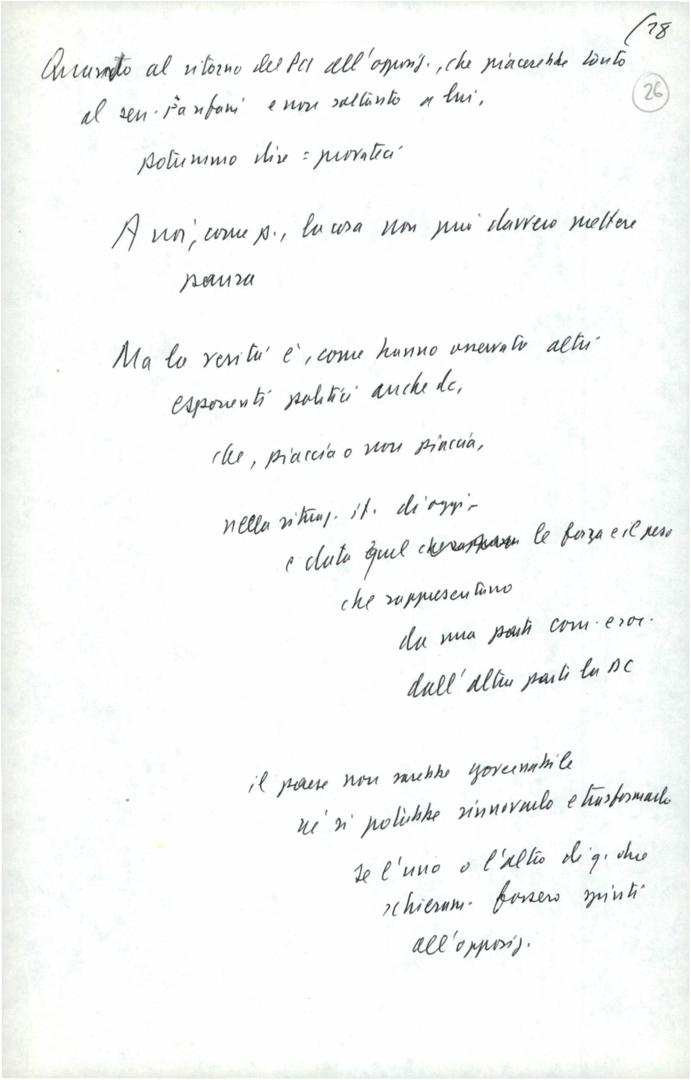 (28
26
Quanto al ritorno del PCI all'opposiz., che piacerebbe tanto
al sen. Fanfani e non soltanto a lui,
potremmo dire: provateci
A noi, come p., la cosa non può davvero mettere
paura
Ma la verità è, come hanno osservato altri
esponenti politici anche dc,
che, piaccia o non piaccia,
nella situaz. it. di oggi
e data la forza e il peso
che rappresentano
da una parte com. e soc.
dall'altra parte la DC
il paese non sarebbe governabile
né si potrebbe rinnovarlo e trasformarlo
se l'uno o l'altro di q. due
schieram. fossero spinti
all'opposiz.